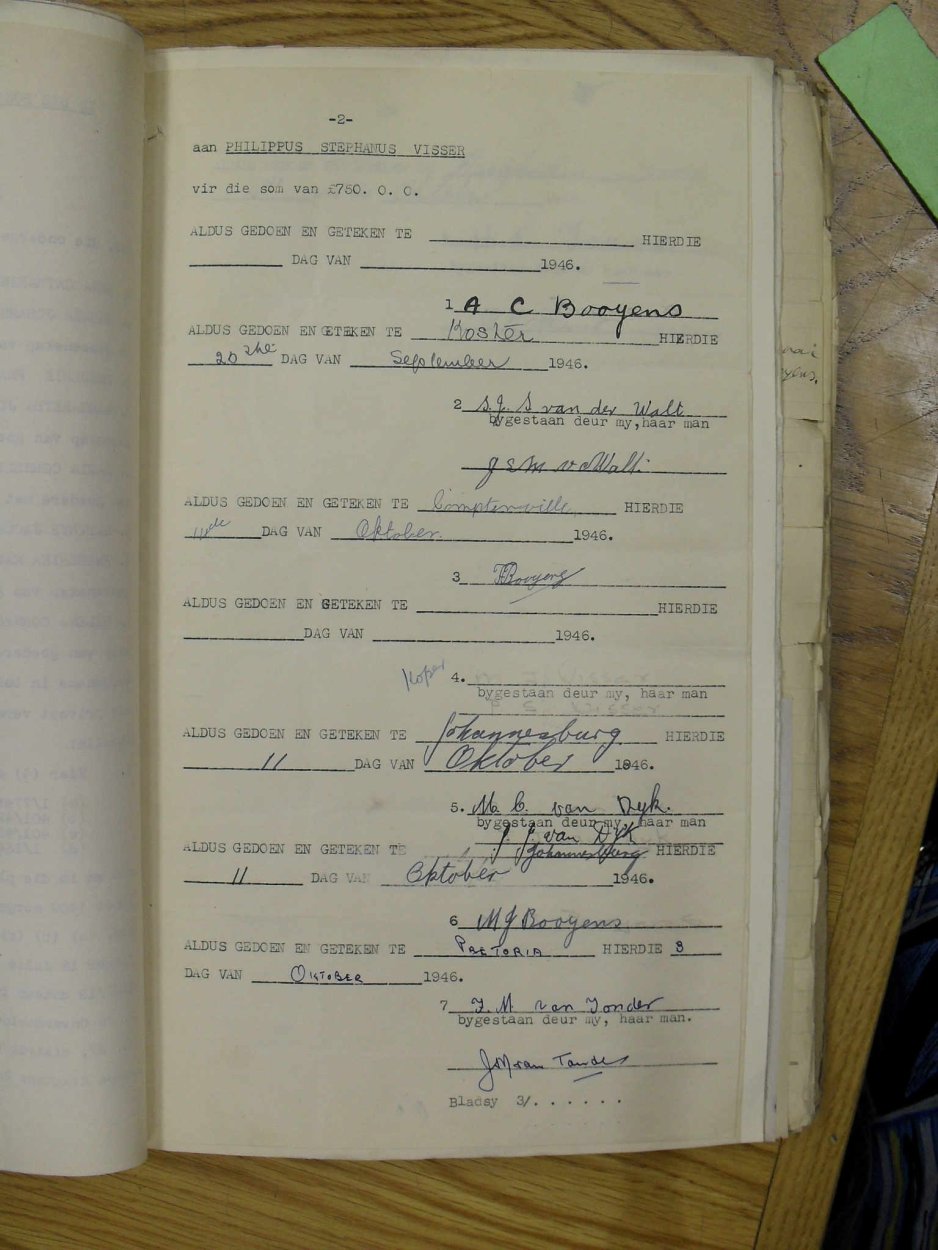 -2-
aan PHILIPPUS STEPHANUS VISSER
vir die som van £750. 0. 0.
ALDUS GEDOEN EN GETEKEN TE ____________ HIERDIE
________ DAG VAN ____________ 1946.
1 A C Booyens
ALDUS GEDOEN EN GETEKEN TE Koster HIERDIE
20ste DAG VAN September 1946.
2 S.J. S van der Walt
bygestaan deur my, haar man
J S M v d Walt.
ALDUS GEDOEN EN GETEKEN TE HIERDIE
11de DAG VAN Oktober 1946.
3 Booyens
ALDUS GEDOEN EN GETEKEN TE ____________ HIERDIE
________ DAG VAN ____________ 1946.
Koper 4.
bygestaan deur my, haar man
P S. Visser
ALDUS GEDOEN EN GETEKEN TE Johannesburg HIERDIE
11 DAG VAN Oktober 1946.
5. M. C. van Dyk.
bygestaan deur my, haar man
J. J. van Dyk
ALDUS GEDOEN EN GETEKEN TE Johannesburg HIERDIE
11 DAG VAN Oktober 1946.
6 M J Booyens
ALDUS GEDOEN EN GETEKEN TE PRETORIA HIERDIE 8
DAG VAN OKTOBER 1946.
7 J. M. van Tonder
bygestaan deur my, haar man.
van Tonder
Bladsy 3/. . . . . .